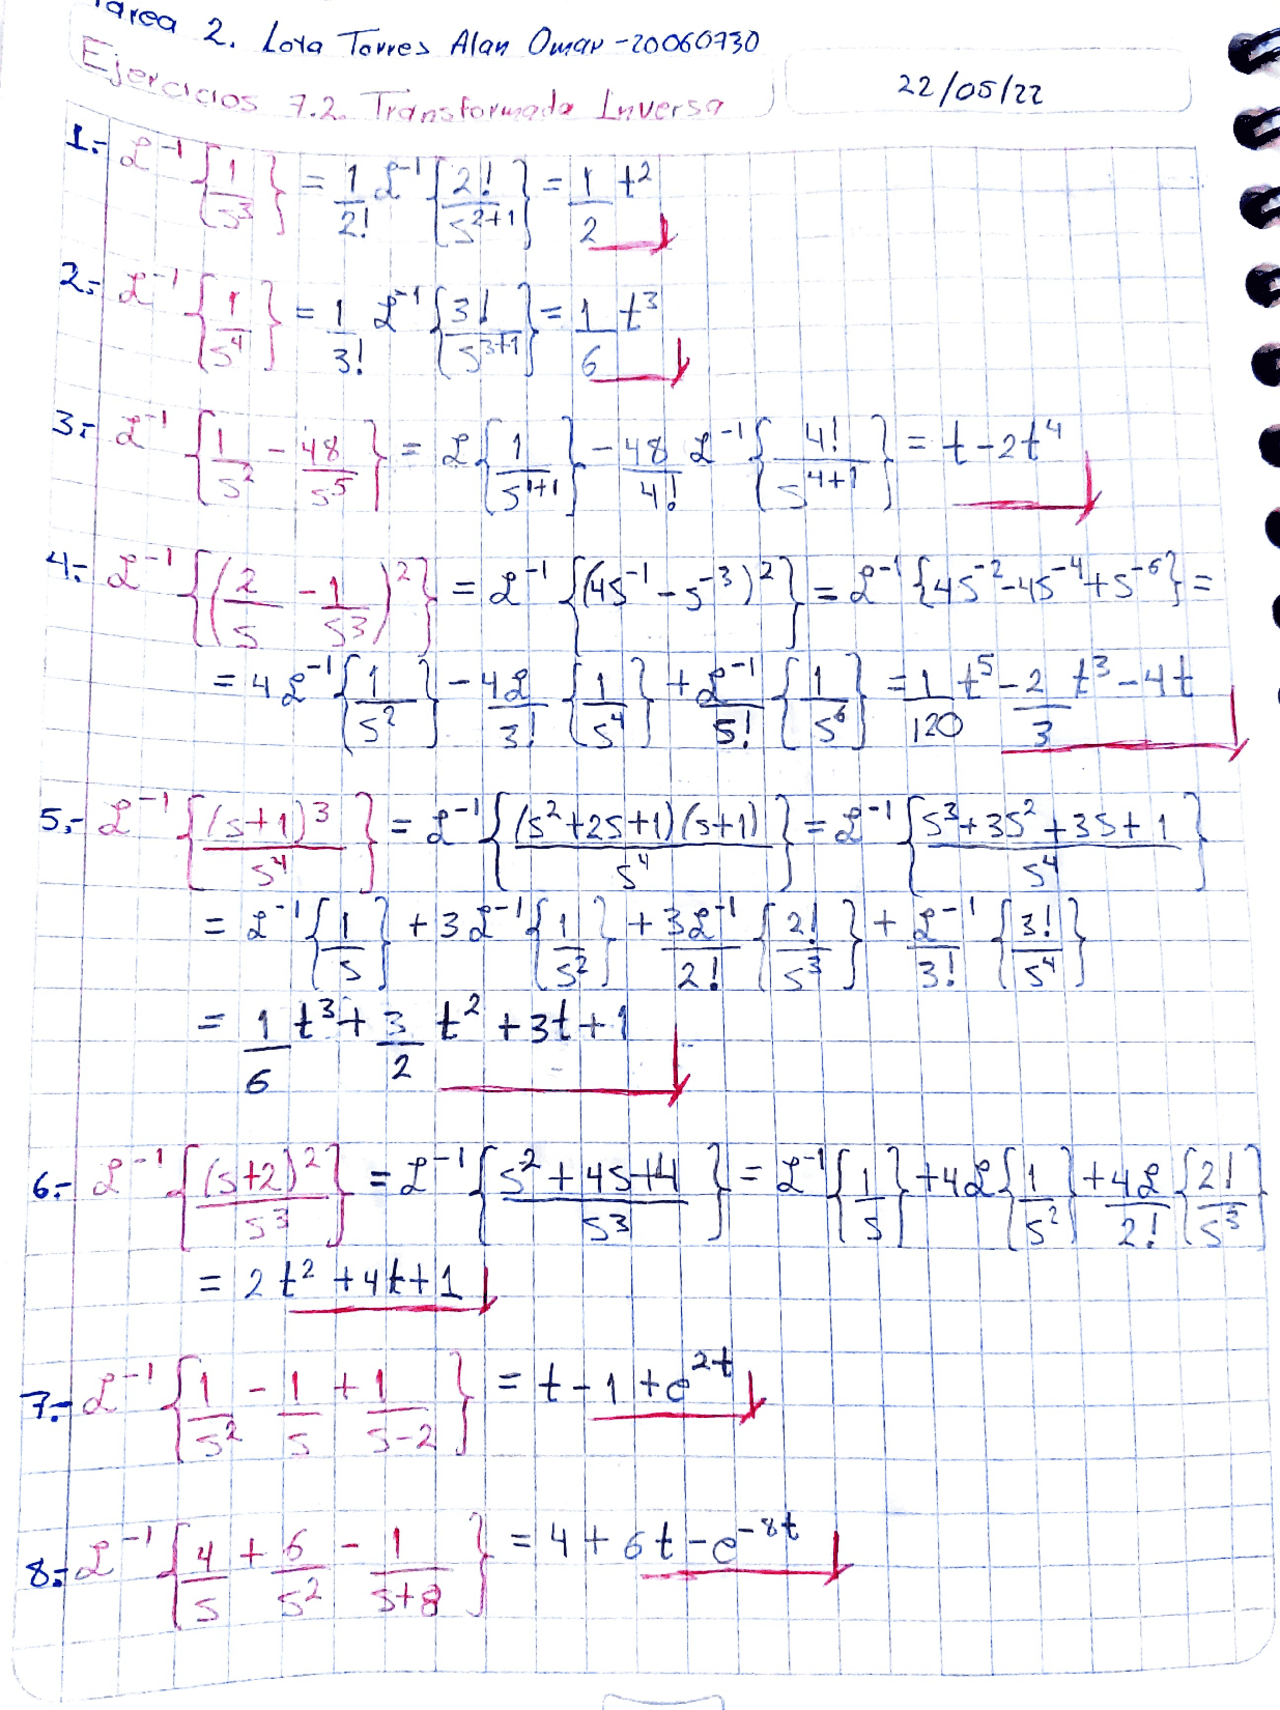 Tarea 2. Lora Torres Alan Omar-20060730
Ejercicios 7.2. Transformada Inversa
22/05/22
1.- ℒ⁻¹ {1/s³} = 1/2! ℒ⁻¹ {2!/s²⁺¹} = 1/2 t²
2.- ℒ⁻¹ {1/s⁴} = 1/3! ℒ⁻¹ {3!/s³⁺¹} = 1/6 t³
3.- ℒ⁻¹ {1/s² - 48/s⁵} = ℒ {1/s¹⁺¹} - 48/4! ℒ⁻¹ {4!/s⁴⁺¹} = t - 2t⁴
4.- ℒ⁻¹ {(2/s - 1/s³)²} = ℒ⁻¹ {(4s⁻¹ - s⁻³)²} = ℒ⁻¹ {4s⁻² - 4s⁻⁴ + s⁻⁶} =
= 4ℒ⁻¹ {1/s²} - 4ℒ/3! {1/s⁴} + ℒ⁻¹/5! {1/s⁶} = 1/120 t⁵ - 2/3 t³ - 4t
5.- ℒ⁻¹ {(s+1)³/s⁴} = ℒ⁻¹ {(s²+2s+1)(s+1)/s⁴} = ℒ⁻¹ {s³+3s²+3s+1/s⁴}
= ℒ⁻¹ {1/s} + 3ℒ⁻¹ {1/s²} + 3ℒ⁻¹/2! {2!/s³} + ℒ⁻¹/3! {3!/s⁴}
= 1/6 t³ + 3/2 t² + 3t + 1
6.- ℒ⁻¹ {(s+2)²/s³} = ℒ⁻¹ {s²+4s+4/s³} = ℒ⁻¹ {1/s} + 4ℒ {1/s²} + 4ℒ/2! {2!/s³}
= 2t² + 4t + 1
7.- ℒ⁻¹ {1/s² - 1/s + 1/s-2} = t - 1 + e²ᵗ
8.- ℒ⁻¹ {4/s + 6/s² - 1/s+8} = 4 + 6t - e⁻⁸ᵗ